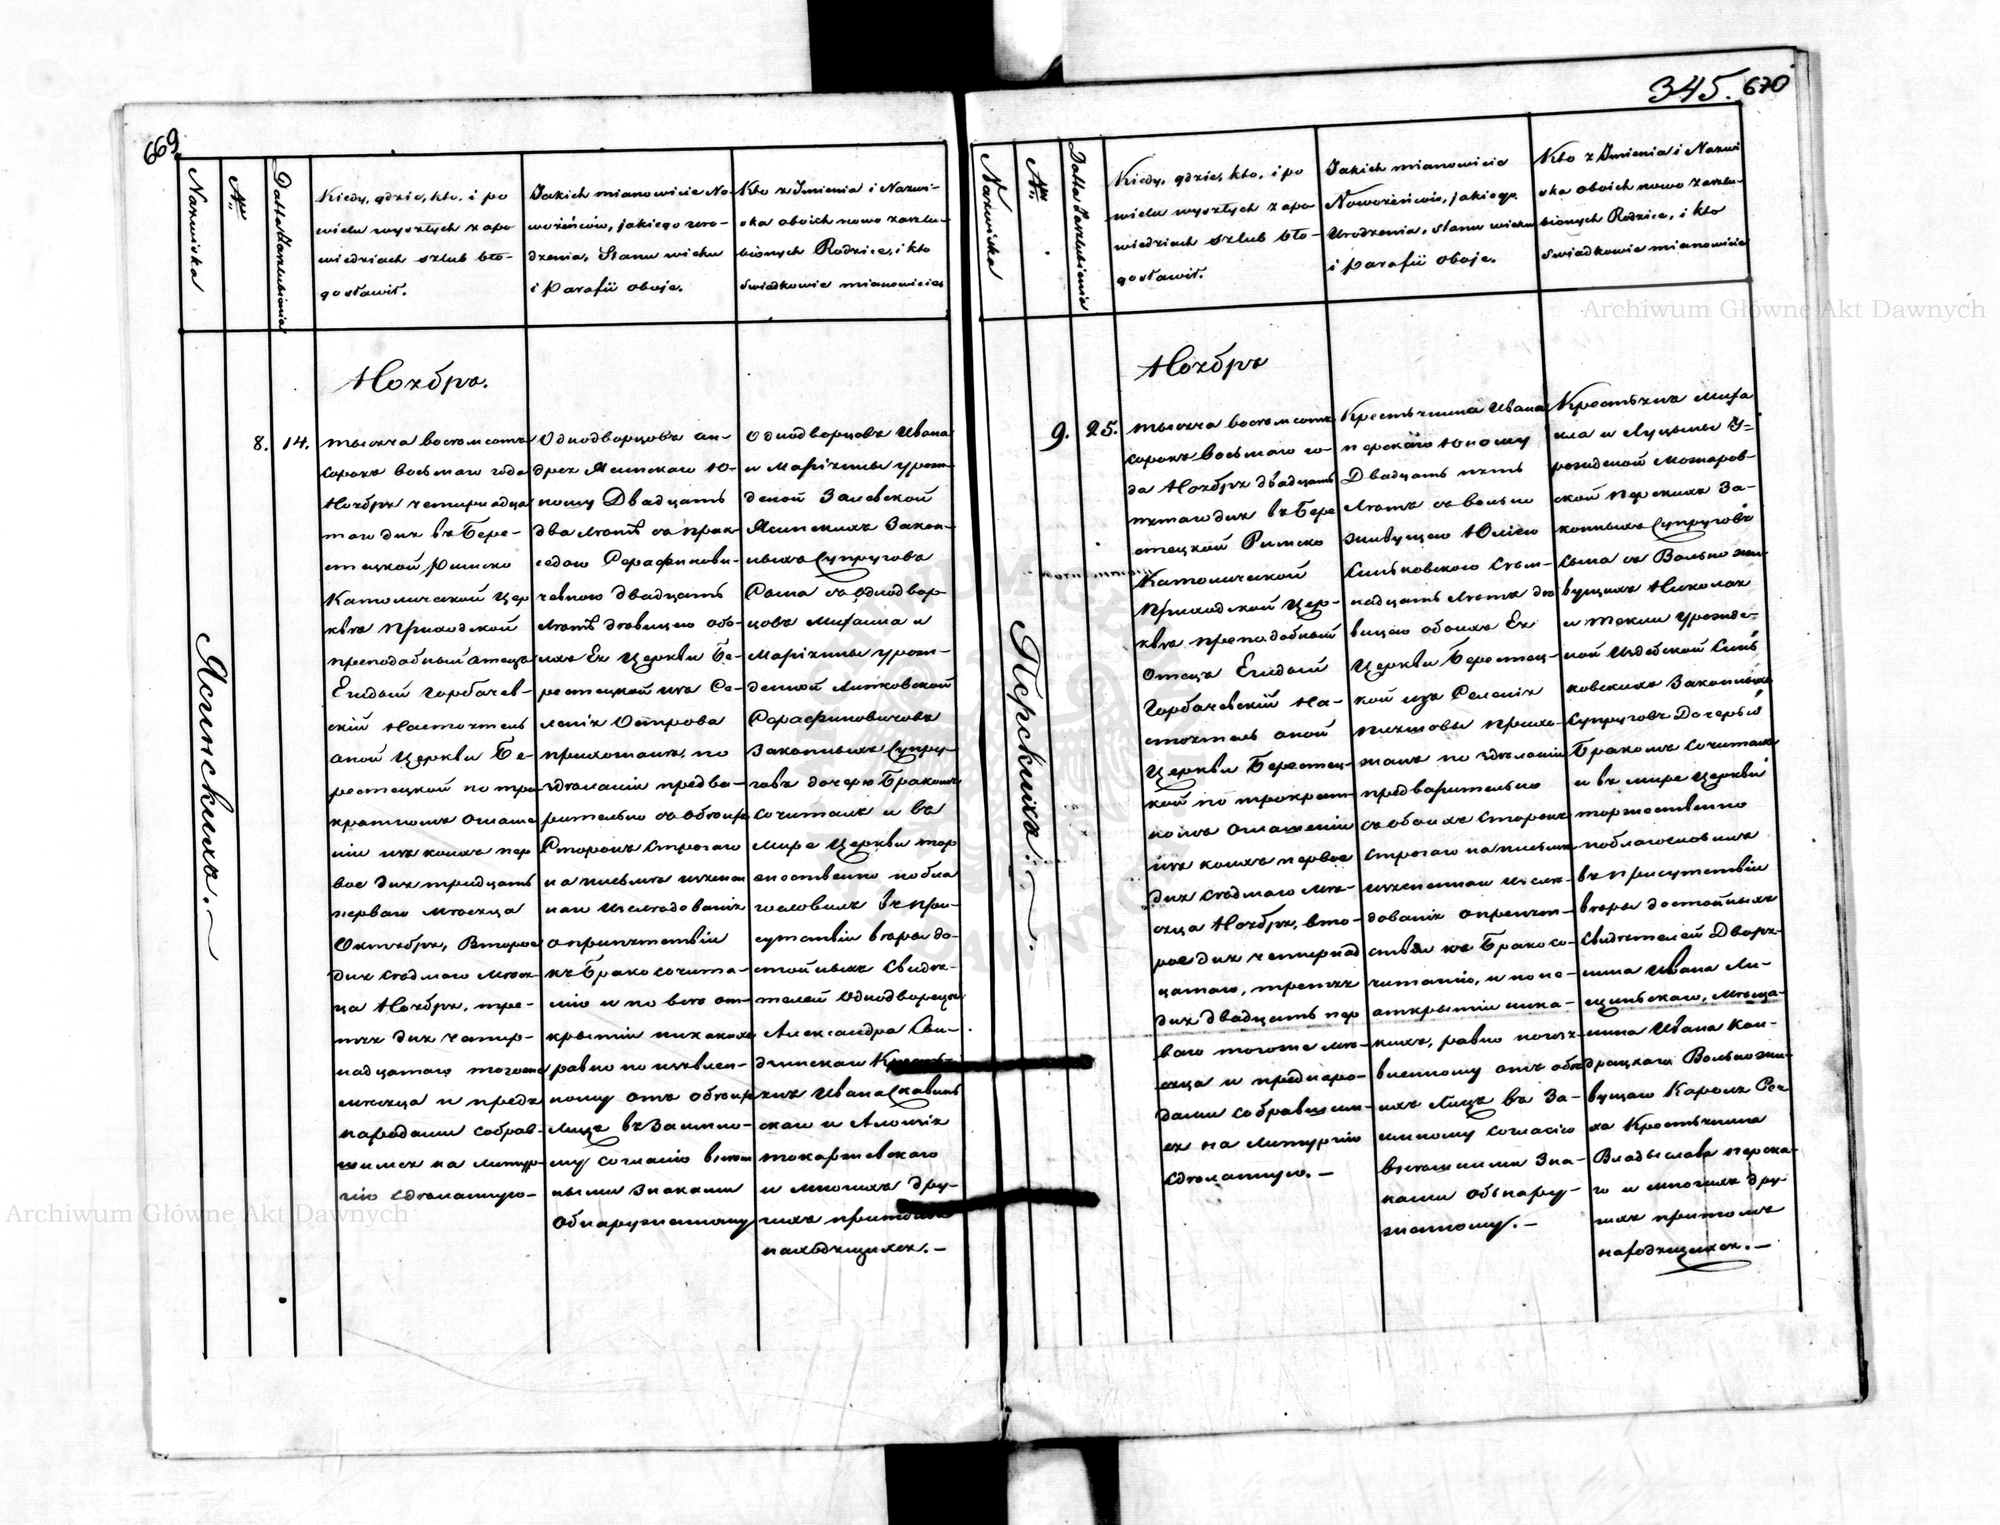 669
Nazwiska
Nru
Datta Zaszlubienia
Kiedy, gdzie, kto, i po
wielu wyszłych zapo
wiedziach szlub bło-
gosławił.
Jakich mianowicie No-
wożeńców, jakiego uro-
dzenia, Stanu wieku
i Parafii oboje.
Kto z Imienia i Nazwi-
ska oboich nowo zaszlu-
bionych Rodzice, i kto
Swiadkowie mianowicie
Ноября.
Ясинскихъ.
8.
14.
тысяча восемсотъ
сорокъ восьмаго года
Ноября четирнадца
таго дня въ Бере-
стецкой Римско
Католической Цер
квѣ Приходской
преподобный отецъ
Егидый Горбачев-
скій Настоятель
оной Церкви Бе-
рестецкой по тро
кратномъ оглаше
ніи изъ коихъ пер
вое дня тридцать
перваго месяца
Октября, Второе
дня седмаго меся-
ца Ноября, тре-
тее дня четир-
надцатаго тогоже
месяца и предъ
народами собрав-
шимся на литур-
гію сделанную-
Однодворцовъ ан-
дрея Ясинскаго Ю-
ношу Двадцать
два летъ съ прак-
седою Серафинови-
чевною двадцать
летъ девицею обо-
ихъ Ея Церкви Бе-
рестецкой изъ Се-
ленія Острова
прихожанъ, по
зделаніи предва-
рительно съ обоихъ
Сторонъ строгаго
на письме изъясн
наго изследованія
опрепятствіи
къ Бракосочита-
нію и по всего от-
крытіи никакихъ
равно по изъявлен-
ному отъ обоихъ
лицъ взаимно-
му согласію внеш
ными знаками
Обнаруженному
Однодворцовъ Ивана
и Маріянны урож-
деной Залевской
Ясинскихъ Закон-
ныхъ Супруговъ
Сына съ однодвор-
цовъ Михаила и
Маріянны урож-
денной Литковской
Серафиновичовъ
Законныхъ Супру-
говъ дочерю Бракомъ
сочиталъ и въ
лице Церкви тор
жественно побла
гословилъ въ при-
сутствіи вѣры до-
стойныхъ Свидѣ-
телей Однодворцовъ
Александра Сви-
дзинскаго Кресть-
янъ Ивана
скаго и Алоизія
токаржевскаго
и многихъ дру-
гихъ притомъ
находящихся.-
345. 670
Nazwiska
Nru
Datta Zaszlubienia
Kiedy, gdzie, kto, i po
wielu wyszłych zapo
wiedziach szlub bło-
gosławił.
Jakich mianowicie
Nowożeńców, jakiego
Urodzenia, stanu wieku
i Parafii oboje.
Kto z Imienia i Nazwi
ska oboich nowo zaszlu-
bionych Rodzice, i kto
Swiadkowie mianowicie
Ноября
Перскихъ.
9.
25.
тысяча восемсотъ
сорокъ восьмаго го-
да Ноября двадцать
пятаго дня въ Бере
стецкой Римско
Католической
Приходской Цер-
квѣ преподобный
Отецъ Егидый
Горбачевскій На-
стоятель оной
Церкви Берестец-
кой по трократ-
номъ оглашеніи
изъ коихъ первое
дня седмаго ме-
сяца Ноября, вто-
рое дня четирнад
цатаго, третее
дня двадцать пер
ваго тогоже ме-
сяца и предъ наро-
дами собравшим-
ся на литургію
сделанную.-
Крестьянина Ивана
перскаго юношу
Двадцать пять
летъ съ вольно
живущею Юліею
Синьковскою Сем-
надцать летъ де
вицею обоихъ Ея
Церкви Берестец-
кой изъ Селенія
прихо-
жанъ по зделаніи
предварительно
съ обоихъ сторонъ
строгаго на письме
изъясненнаго изсле-
дованія опрепят-
ствіи къ Бракосо-
читанію, и по не-
открытіи ника-
кихъ, равно по изъя-
вленному отъ обо-
ихъ лицъ вза-
имному согласію
внешними Зна-
ками обнару-
женному.-
Крестьянъ Миха
ила и Луцыны У-
рожденой Можаров-
ской перскихъ За-
конныхъ Супруговъ
Сына съ Вольно жи-
вущихъ Николая
и Теклы урожде-
ной Синь
ковскихъ Законныхъ
Супруговъ Дочерью
Бракомъ сочиталъ
и въ лице Церкви
торжественно
поблагословилъ
въ присутствіи
вѣры достойныхъ
Свидетелей Дворя-
нина Ивана Ли-
щинскаго, Меща-
нина Ивана Кон-
драцкаго Вольно жи-
вущаго Кароля
Крестьянина
Владыслава перска-
го и многихъ дру-
гихъ притомъ
находящихся.-
Archiwum Główne Akt Dawnych
Archiwum Główne Akt Dawnych